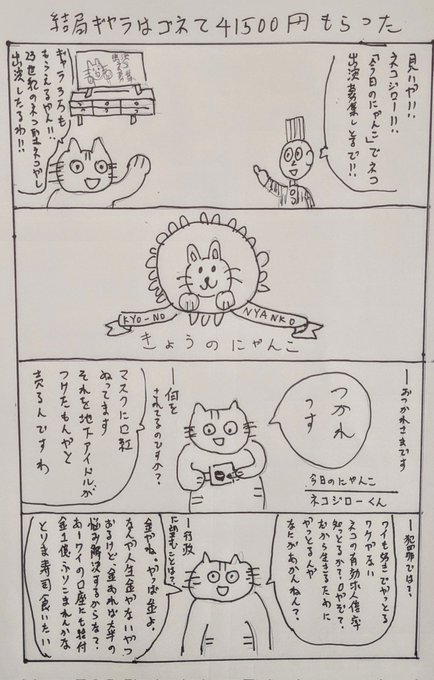 結局ギャラはゴネて41500円もらった
見いや!!
ネコジロー!!
「今日のにゃんこ」でネコ
出演募集しとるで!!
ギャラろろも
もらえるやん!!
出演したるわ!!
KYO-NO
NYANKO
きょうのにゃんこ
―おつかれさまです
つかれ
っす
今日のにゃんこ
ネコジローくん
―何を
されてるのですか?
マスクに口紅
ぬってます
それを地下アイドルが
つけたもんやと
売るんですわ
―犯罪では?
ワイも好きでやっとる
ワケやない
ネコの有効求人倍率
知っとるか?0やぞ?
むから生きるために
やっとるんや
なにがあかんねん?
―行政
に望むことは?
金やね、やっぱ金よ。
なんや人生金やないやつ
おるけど、金あれば大半の
悩み解決するからな?
あーワイの口座にも給付
金1億ふりこまれんかな
とりま寿司食いたい